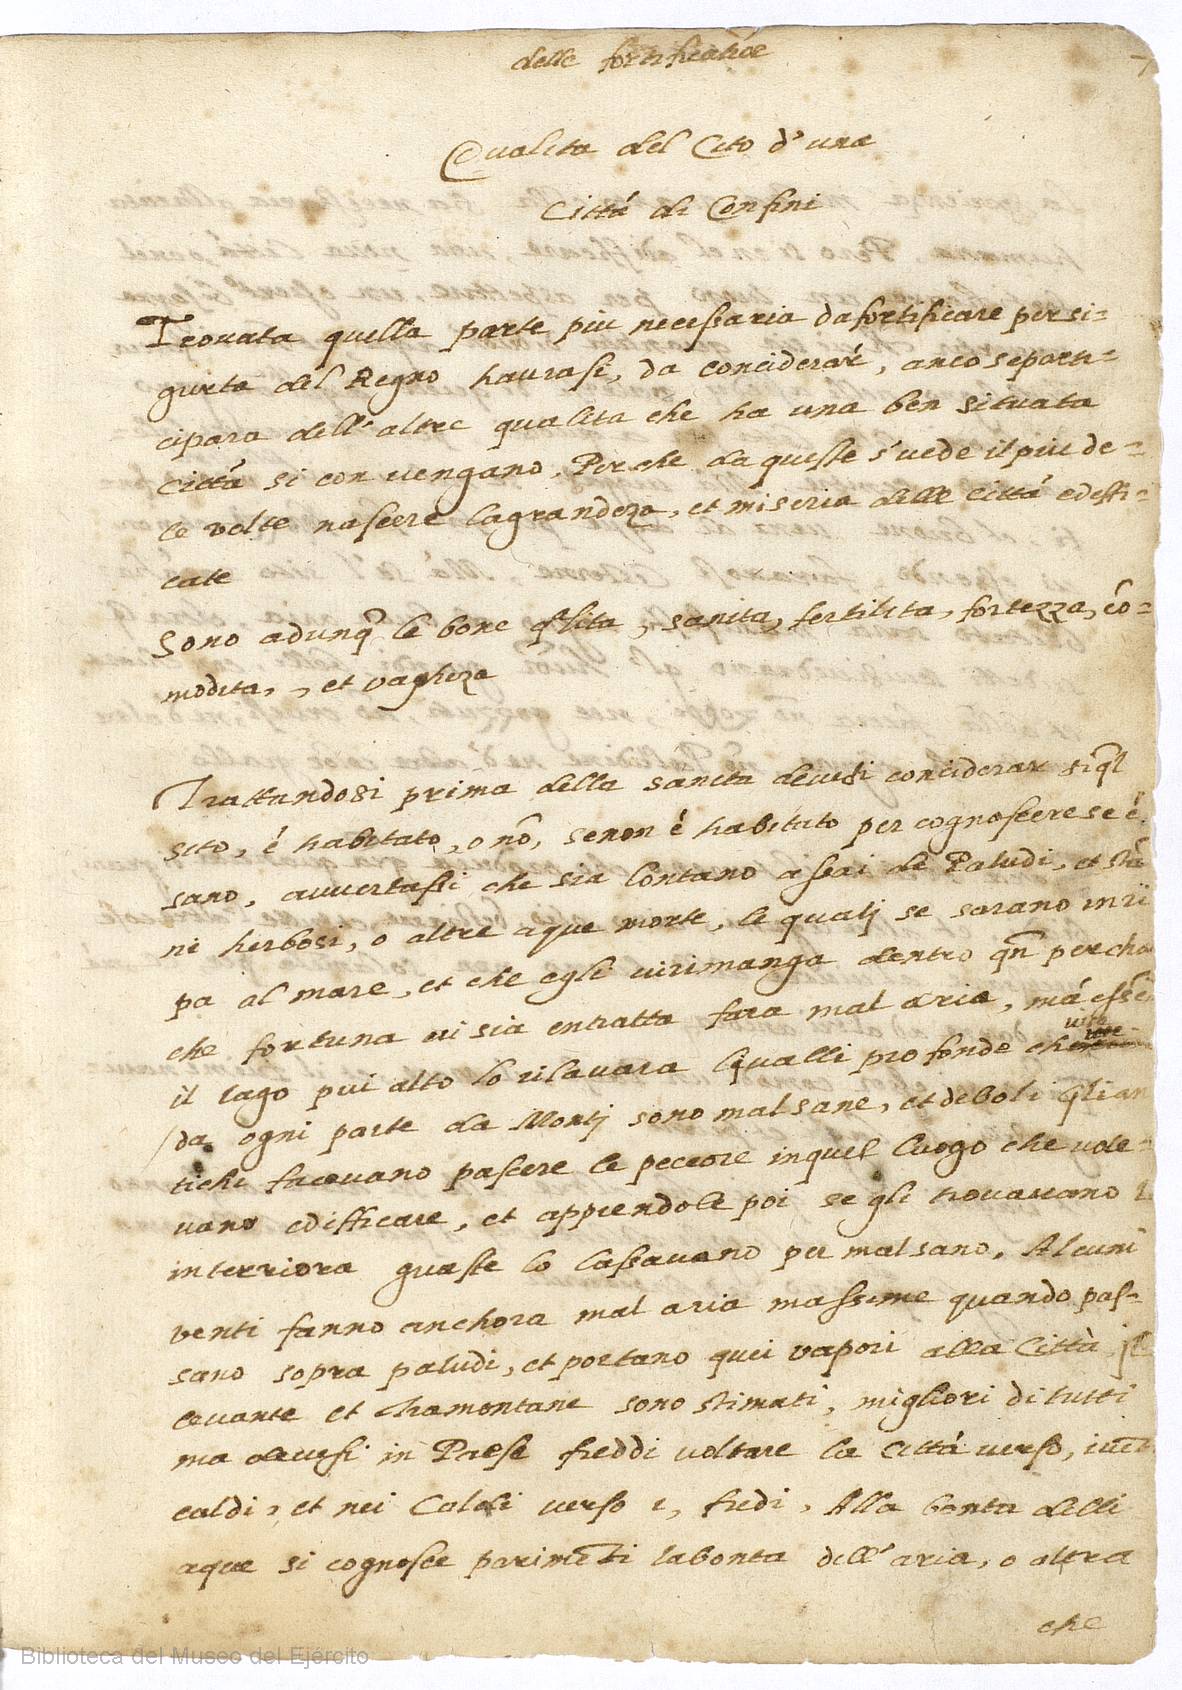 delle fortificatioe
7
Qualita del Cito d'una
Città di Confini
Trouata quella parte piu necessaria da fortificare per si=
gurta del Regno haurasi, da conciderare, anco se parti=
cipara dell'altre qualita che ha una ben situata
Città si convengano, Perche da queste s'uede il piu de=
le volte nascere la grandeza, et miseria delle Città edeffi=
cate
Sono adunq̃ le bone q̃lita, sanita, fertilita, fortezza, cõ=
modita, et vagheza
Trattandosi prima della sanita deuesi conciderar si q̃l
sito, é habitato, o nõ, se non é habitato per cognoscere se é
sano, auuertassi che sia lontano assai de Paludi, et Stã
ni herbosi, o altre aque morte, le qualj se sarano in ri
pa al mare, et che egli vi rimanga dentro qñ per cha
che fortuna vi sia entratta fara mal aria, má essẽ
il lago piu alto lo rilauara li qualli profonde ch
da ogni parte da Montj sono mal sane, et deboli gli an
tichi faceuano pascere le peccore in quel luogo che uole=
uano edifficare, et apprendole poi se gli trouauano
interriora guaste lo lassauano per mal sano. Alcuni
venti fanno anchora mal aria massime quando pas=
sano sopra paludi, et portano quei vapori alla Città, il
leuante et tramontane sono stimati, migliori di tutti
ma deuesi in Paese freddi voltare la Città verso, i uẽti
caldi, et nei Caldi verso i, fredi, Alla bonta delli
aque si cognosce parimẽti la bonta dell'aria, o altra
che
Biblioteca del Museo del Ejército